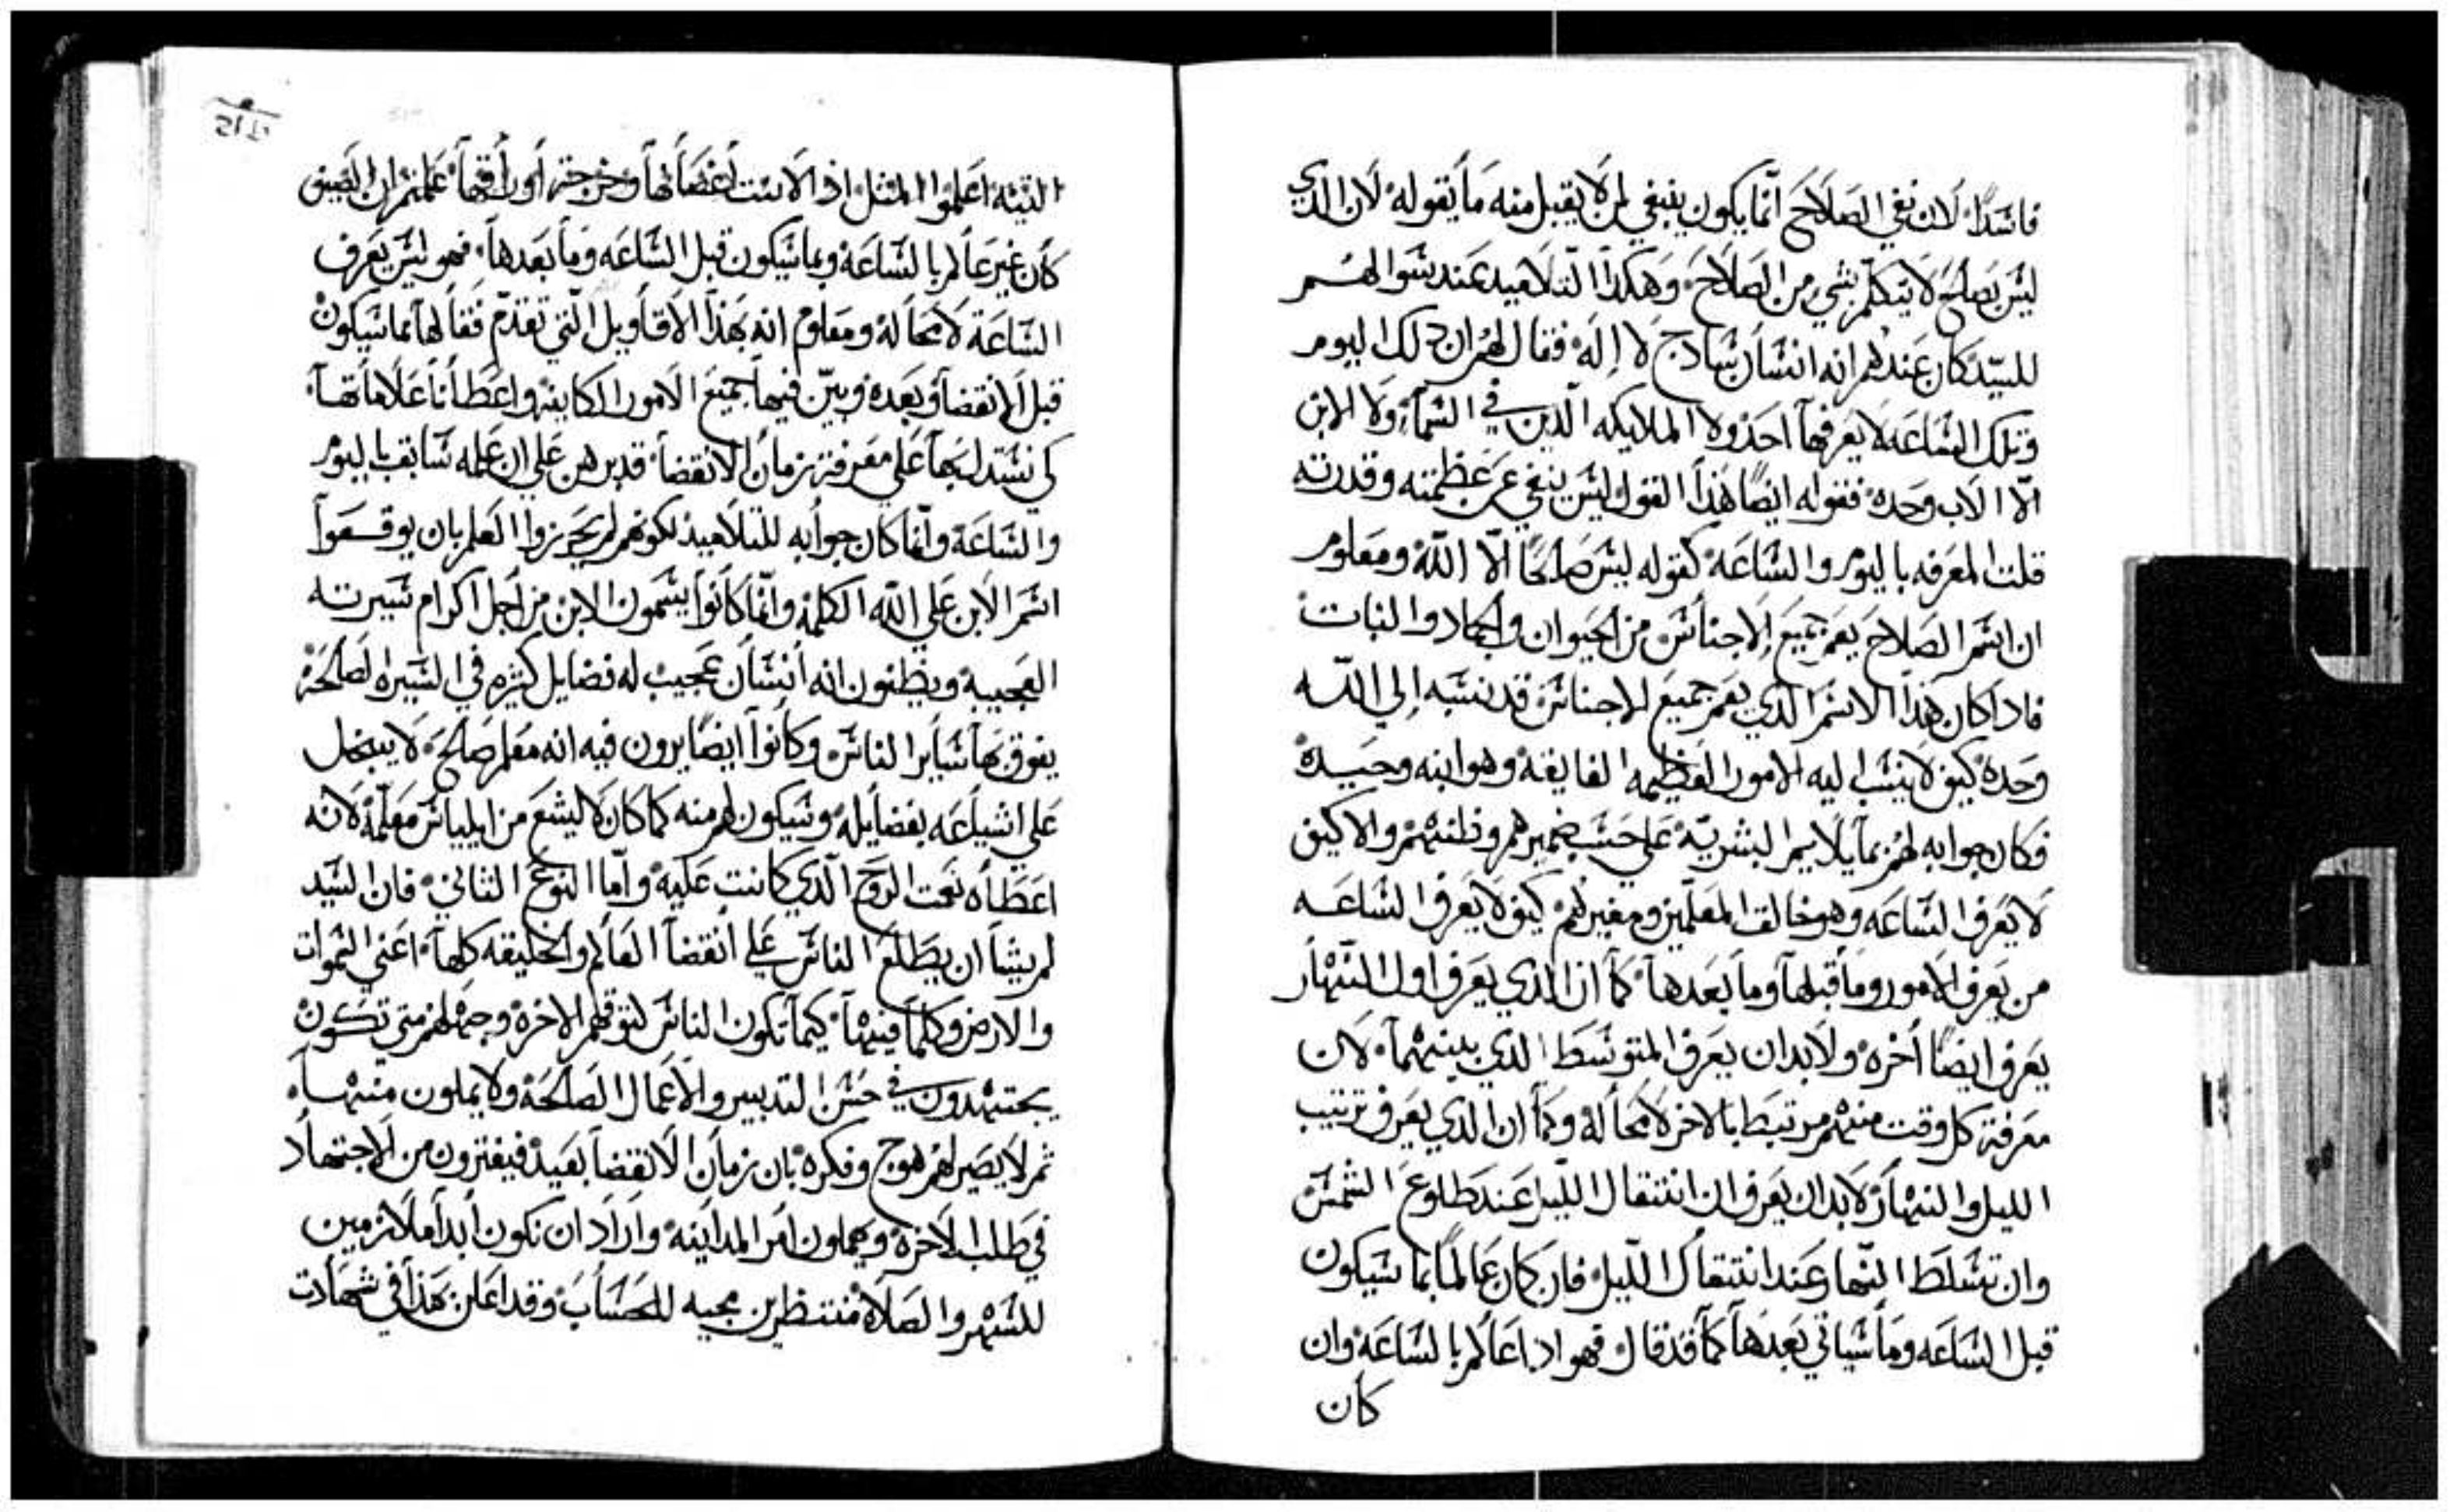 فاسدًا لان نفي الصلاح انما يكون ينبغي لمن لا يقبل منه ما يقوله لان الذي
ليس بصالح لا يتكلم بشي من الصلاح وهكذا التلاميد عند سوالهم
للسيد كان عندهم انه انسان سادج لا إله فقال لهم ان دلك اليوم
وتلك الساعه لا يعرفها احد ولا الملايكه الدين في السماء ولا الابن
الا الاب وحده فقوله ايضًا هذا القول ليس ينفي عن عظمته وقدرته
قلت المعرفه باليوم والساعه كقوله ليس صالحًا الا الله ومعلوم
ان اسم الصلاح يعم جميع الاجناس من الحيوان والجماد والنبات
فادا كان هذا الاسم الذي يعم جميع الاجناس قد نسبه إلي الله
وحده كيف لا ينسب اليه الامور العظيمه الفايقه وهو ابنه وحيده
فكان جوابه لهم بما يلايم البشريه على حسب ضميرهم وظنهم والا كيف
لا يعرف الساعه وهو خالق المعلمين ومغيرهم كيف لا يعرف الساعه
من يعرف الامور وما قبلها وما بعدها كما ان الذي يعرف اول النهار
يعرف ايضًا اخره ولا بد ان يعرف المتوسط الذي بينهما لان
معرفة كل وقت منهم مرتبط بالاخر لا محاله وكما ان الذي يعرف ترتيب
الليل والنهار لا بد ان يعرف ان انتقال الليل عند طلوع الشمس
وان تسلط النهار عند انتقال الليل فان كان عالمًا بما سيكون
قبل الساعه وما سياتي بعدها كما قد قال فهو ادا عالم بالساعه وان
كان
التينه اعلموا المثل اذا لانت اغصانها وخرجت أوراقها علمتم ان الصيف
كان غير عالم بالساعه وبما سيكون قبل الساعه وما بعدها فهو ليس يعرف
الساعة لا محاله ومعلوم انه بهذا الاقاويل التي تقدم فقالها بما سيكون
قبل الانقضا وبعده وبين فيها جميع الامور الكاينه واعطانا علاماتها
كي نستدل بها علي معرفة زمان الانقضا قد برهن علي ان علمه سابق باليوم
والساعه وانما كان جوابه للتلاميد لكونهم لم يحرزوا العلم بان يوقعوا
اسم الابن علي الله الكلمه وانما كانوا يسمون الابن من اجل اكرام سيرته
العجيبه ويظنون انه انسان عجيب له فضايل كثيره في السيره الصالحه
يفوق بها ساير الناس وكانوا ايضًا يرون فيه انه معلم صالح لا يبخل
علي اشياعه بفضايله وسيكون لهم منه كما كان لاليشع من ايلياس معلمه لانه
اعطاه نعت الروح الذي كانت عليه واما النوع الثاني فان السيد
لم يشا ان يطلع الناس علي انقضا العالم والخليقه كلها اعني السموات
والارض وكلما فيها كيما تكون الناس لتوقهم الاخرة وجهلهم متي تكون
يجتهدون في حسن التدبير والاعمال الصالحة ولا يملون منها
ثم لا يصير لهم هوج وفكره بان زمان الانقضا بعيد فيفترون من الاجتهاد
في طلب الاخرة ويهملون امر المداينه واراد ان نكون أبدا ملازمين
للسهر والصلاة منتظرين مجيه للحساب وقد اعلن بهذا في شهادت